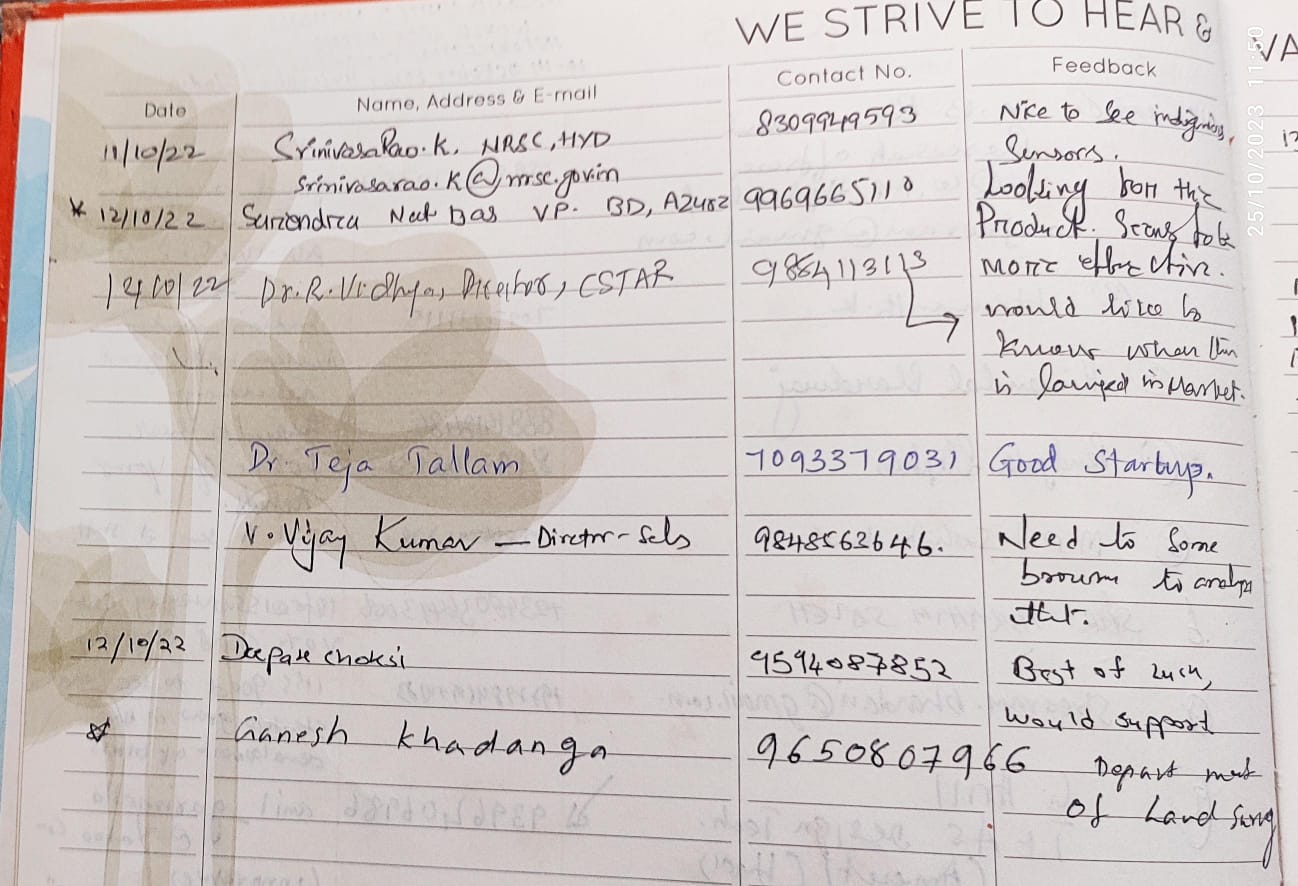 WE STRIVE TO HEAR &
VA
Date
Name, Address & E-mail
Contact No.
Feedback
11/10/22 SrinivasaRao.K, NRSC, HYD 8309949593 Nice to See indignious,
srinivasarao.K@nrsc.govin Sensors.
* 12/10/22 Surendra Nath Das VP. BD, 9969665110 Looking for the
Product. Seems to be
12/10/22 Dr. R. Vidhya, Director, CSTAR 9884113113 more effective.
would like to
know when this
is lauched in Market.
Dr. Teja Tallam 7093379031 Good Startup.
V. Vijay Kumar — Director - Sels 9848563646. Need to Some
to
that.
12/10/22 Deepak choksi 9594087852 Best of luck,
would support
Ganesh Khadanga 9650807966 Depart ment
Of Land
25/10/2023 11:50